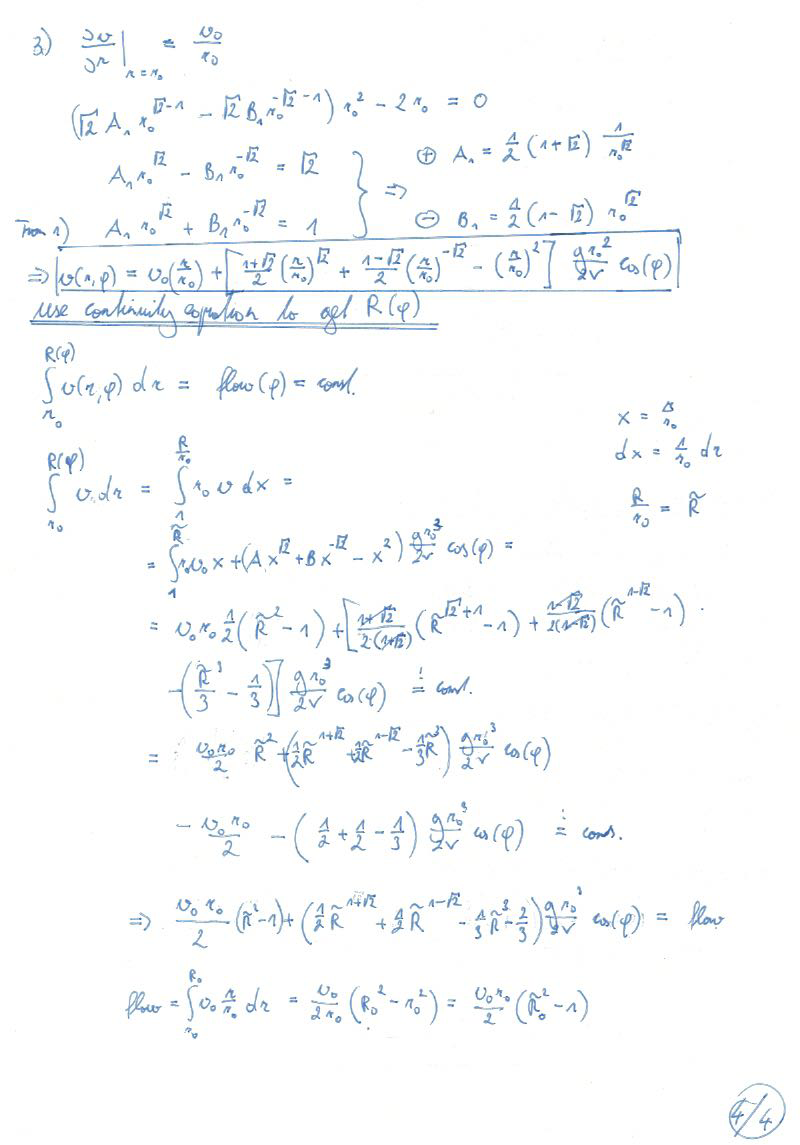 3) ∂v/∂r |_{r=r₀} = v₀/r₀
(√2 A₁ r₀^{√2-1} - √2 B₁ r₀^{-√2-1}) r₀² - 2r₀ = 0
A₁ r₀^{√2} - B₁ r₀^{-√2} = √2 } ⇒ ⊕ A₁ = 1/2 (1+√2) 1/r₀^{√2}
From 1) A₁ r₀^{√2} + B₁ r₀^{-√2} = 1 } ⇒ ⊖ B₁ = 1/2 (1-√2) r₀^{√2}
⇒ v(r,φ) = v₀(r/r₀) + [ (1+√2)/2 (r/r₀)^{√2} + (1-√2)/2 (r/r₀)^{-√2} - (r/r₀)² ] gr₀²/2ν cos(φ)
use continuity equation to get R(φ)
∫_{r₀}^{R(φ)} v(r,φ) dr = flow(φ) = const.
x = r/r₀
dx = 1/r₀ dr
R/r₀ = R̃
∫_{r₀}^{R(φ)} v dr = ∫_{1}^{R/r₀} r₀ v dx =
= ∫_{1}^{R̃} r₀v₀ x + (A x^{√2} + B x^{-√2} - x²) gr₀³/2ν cos(φ) =
= v₀ r₀ 1/2 (R̃² - 1) + [ (1+√2)/2(1+√2) (R̃^{√2+1} - 1) + (1-√2)/2(1-√2) (R̃^{1-√2} - 1) ·
-(R̃³/3 - 1/3) ] gr₀³/2ν cos(φ) ≟ const.
= v₀r₀/2 R̃² + (1/2 R̃^{1+√2} + 1/2 R̃^{1-√2} - 1/3 R̃³) gr₀³/2ν cos(φ)
- v₀r₀/2 - (1/2 + 1/2 - 1/3) gr₀³/2ν cos(φ) ≟ cons.
⇒ v₀r₀/2 (R̃² - 1) + (1/2 R̃^{1+√2} + 1/2 R̃^{1-√2} - 1/3 R̃³ - 2/3) gr₀³/2ν cos(φ) = flow
flow = ∫_{r₀}^{R₀} v₀ r/r₀ dr = v₀/2r₀ (R₀² - r₀²) = v₀r₀/2 (R̃₀² - 1)
4/4